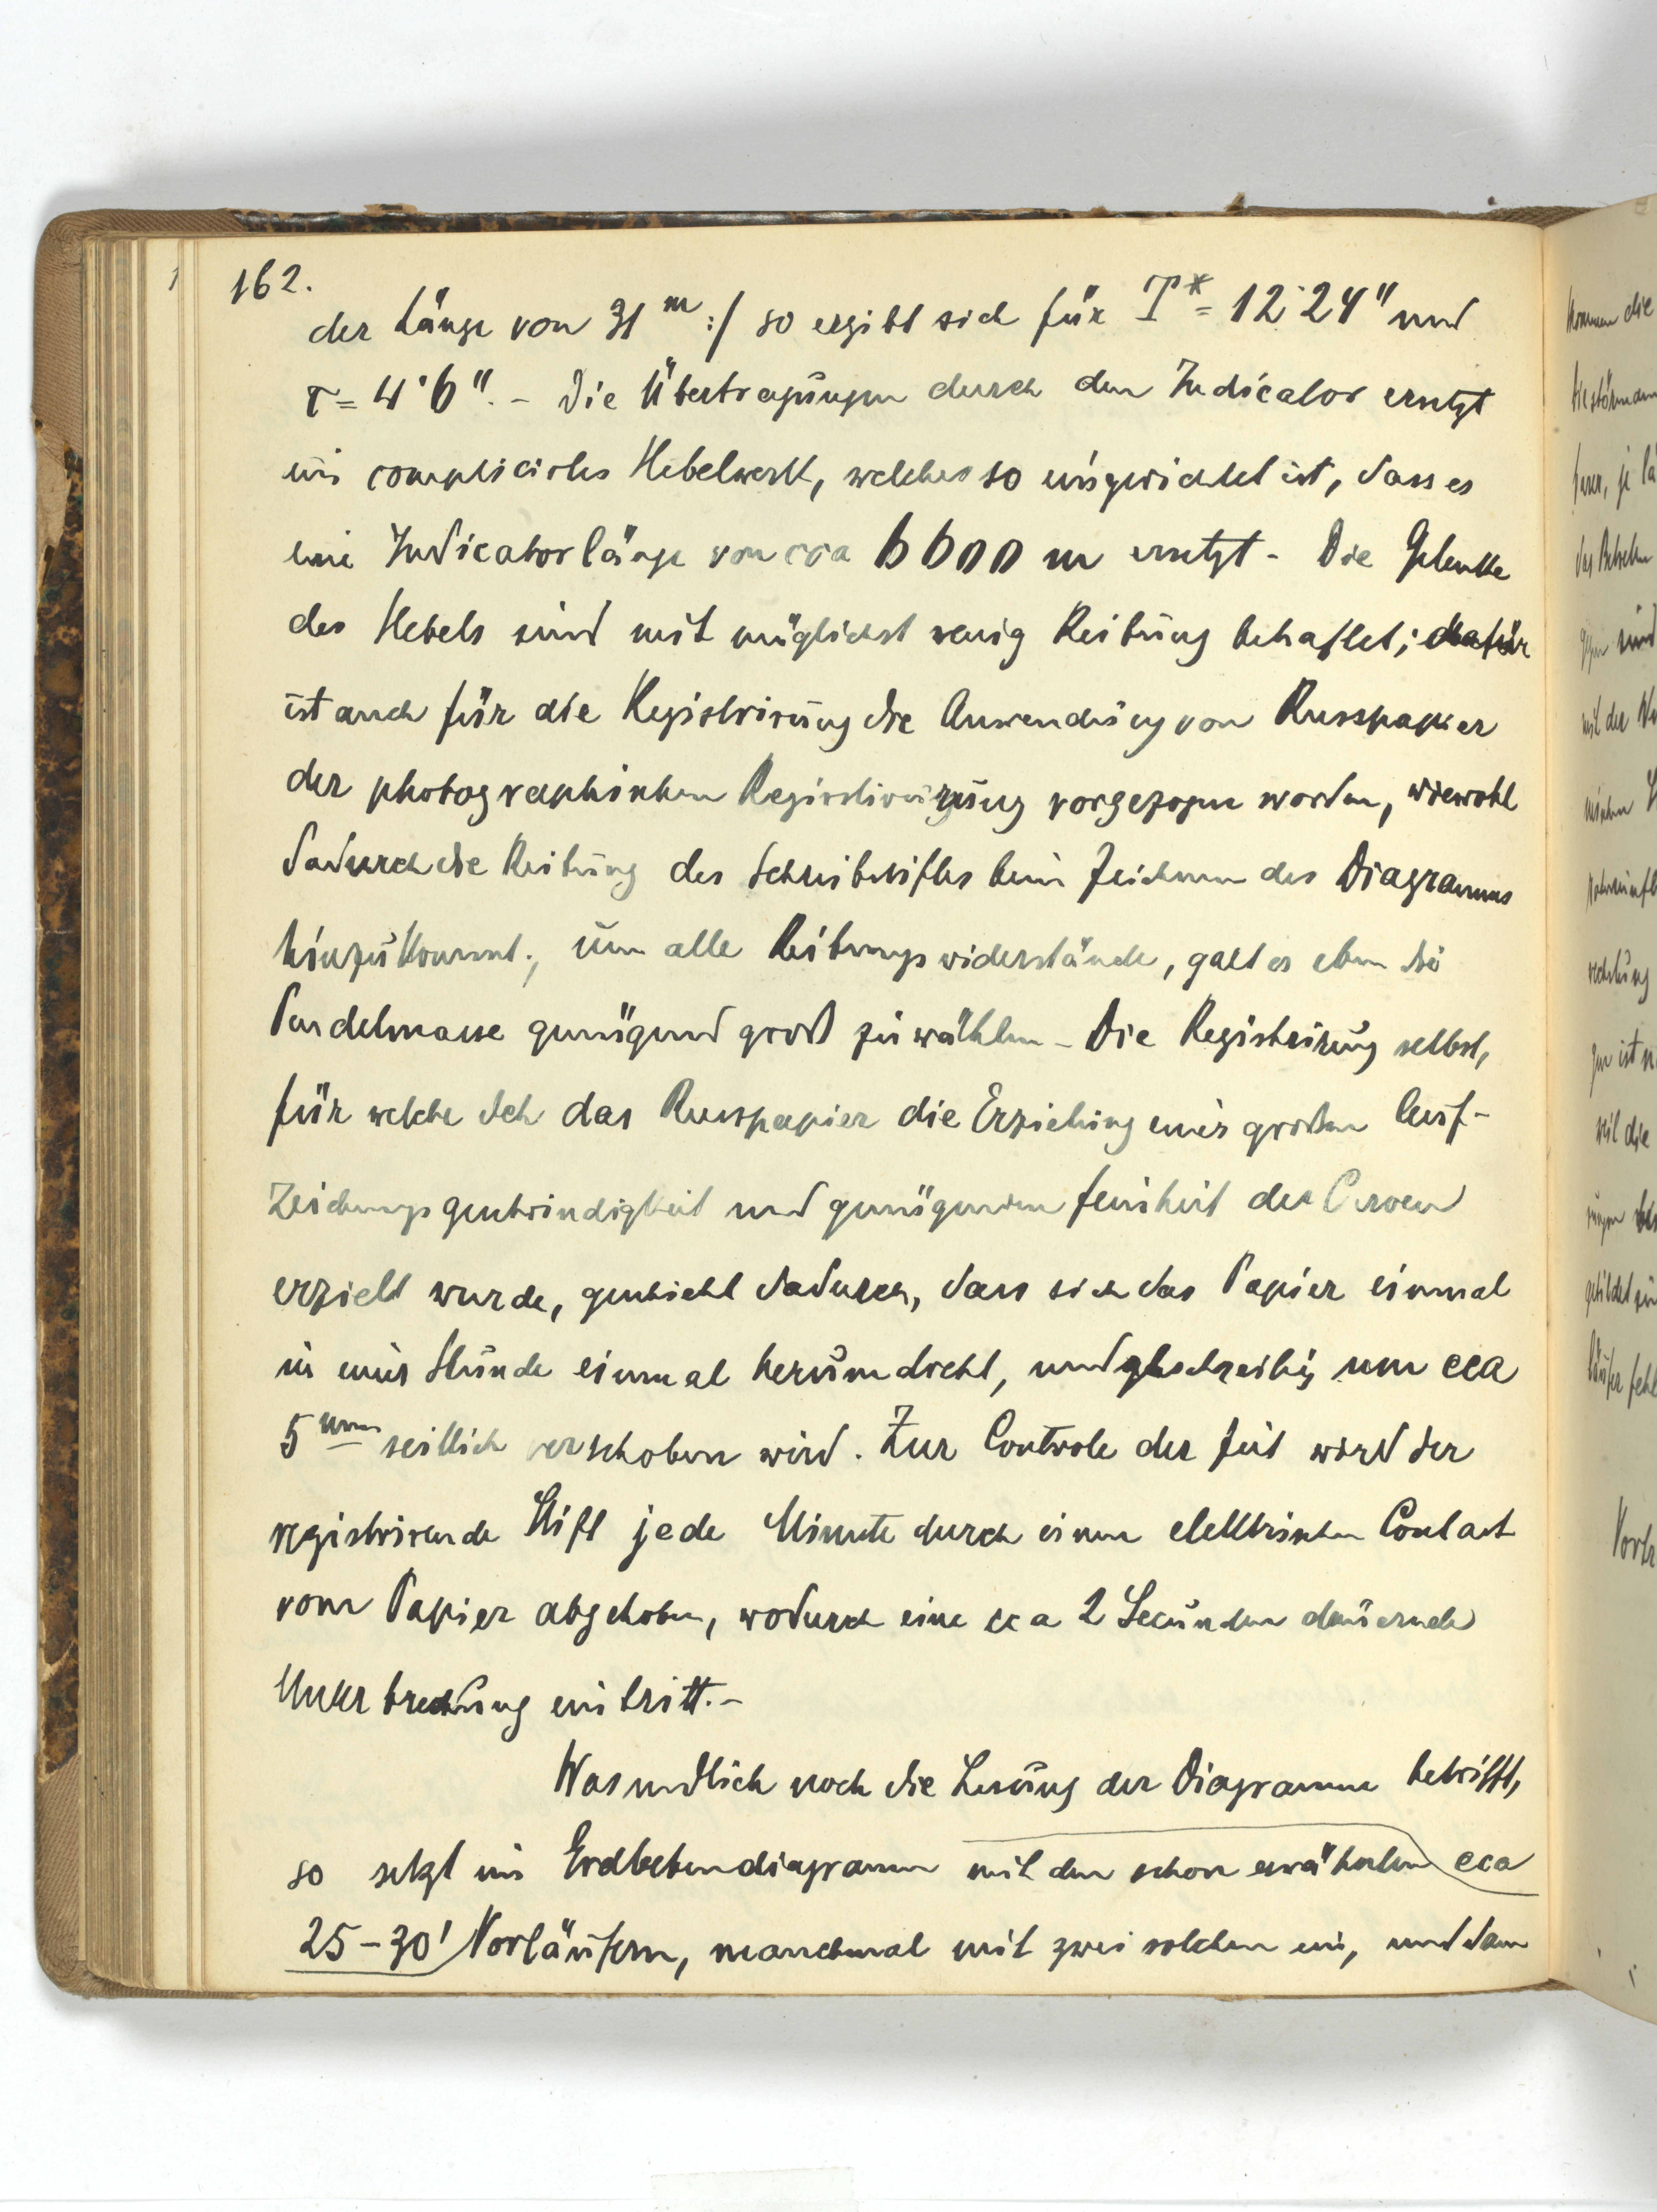 162.
der Länge von 31 m :/ so ergibt sich für T* = 12·24" und
τ = 4·6". - Die Übertragungen durch den Indicator ersetzt
ein complicirtes Hebelwerk, welches so eingerichtet ist, dass es
eine Indicatorlänge von cca 6600 m ersetzt - Die Gelenke
des Hebels sind mit möglichst wenig Reibung behaftet; dafür
ist auch für die Registrirung die Anwendung von Russpapier
der photographischen Registrirung vorgezogen worden, wiewohl
dadurch die Reibung des Schreibstiftes beim Zeichnen des Diagramms
hinzukommt., Um alle Reibungswiderstände, galt es eben die
Pendelmasse genügend groß zu wählen - Die Registrirung selbst,
für welche sich das Russpapier die Erziehung einer großen Auf-
zeichnungsgeschwindigkeit und genügenden Feinheit der Curven
erzielt wurde, geschieht dadurch, dass sich das Papier einmal
in einer Stunde einmal herumdreht, und gleichzeitig um cca
5 mm seitlich verschoben wird. Zur Controle der Zeit wird der
registrirende Stift jede Minute durch einen elektrischen Contact
vom Papier abgehoben, wodurch eine cca 2 Secunden dauernde
Unterbrechung eintritt. -
Was endlich noch die Lesung der Diagramme betrifft,
so setzt ein Erdbebendiagramm mit den schon erwähnten cca
25-30' Vorläufern, manchmal mit zwei solchen ein, und dann